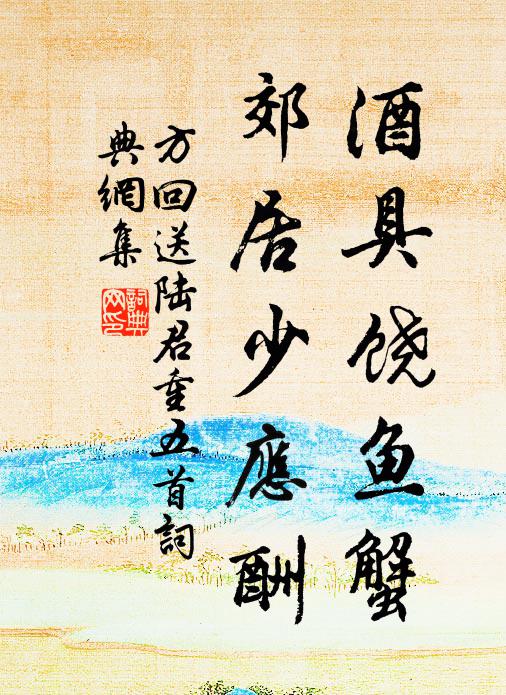 酒具饶鱼蟹
郊居少應酬
方回送陆君重五首詞
典網集
詞典网印